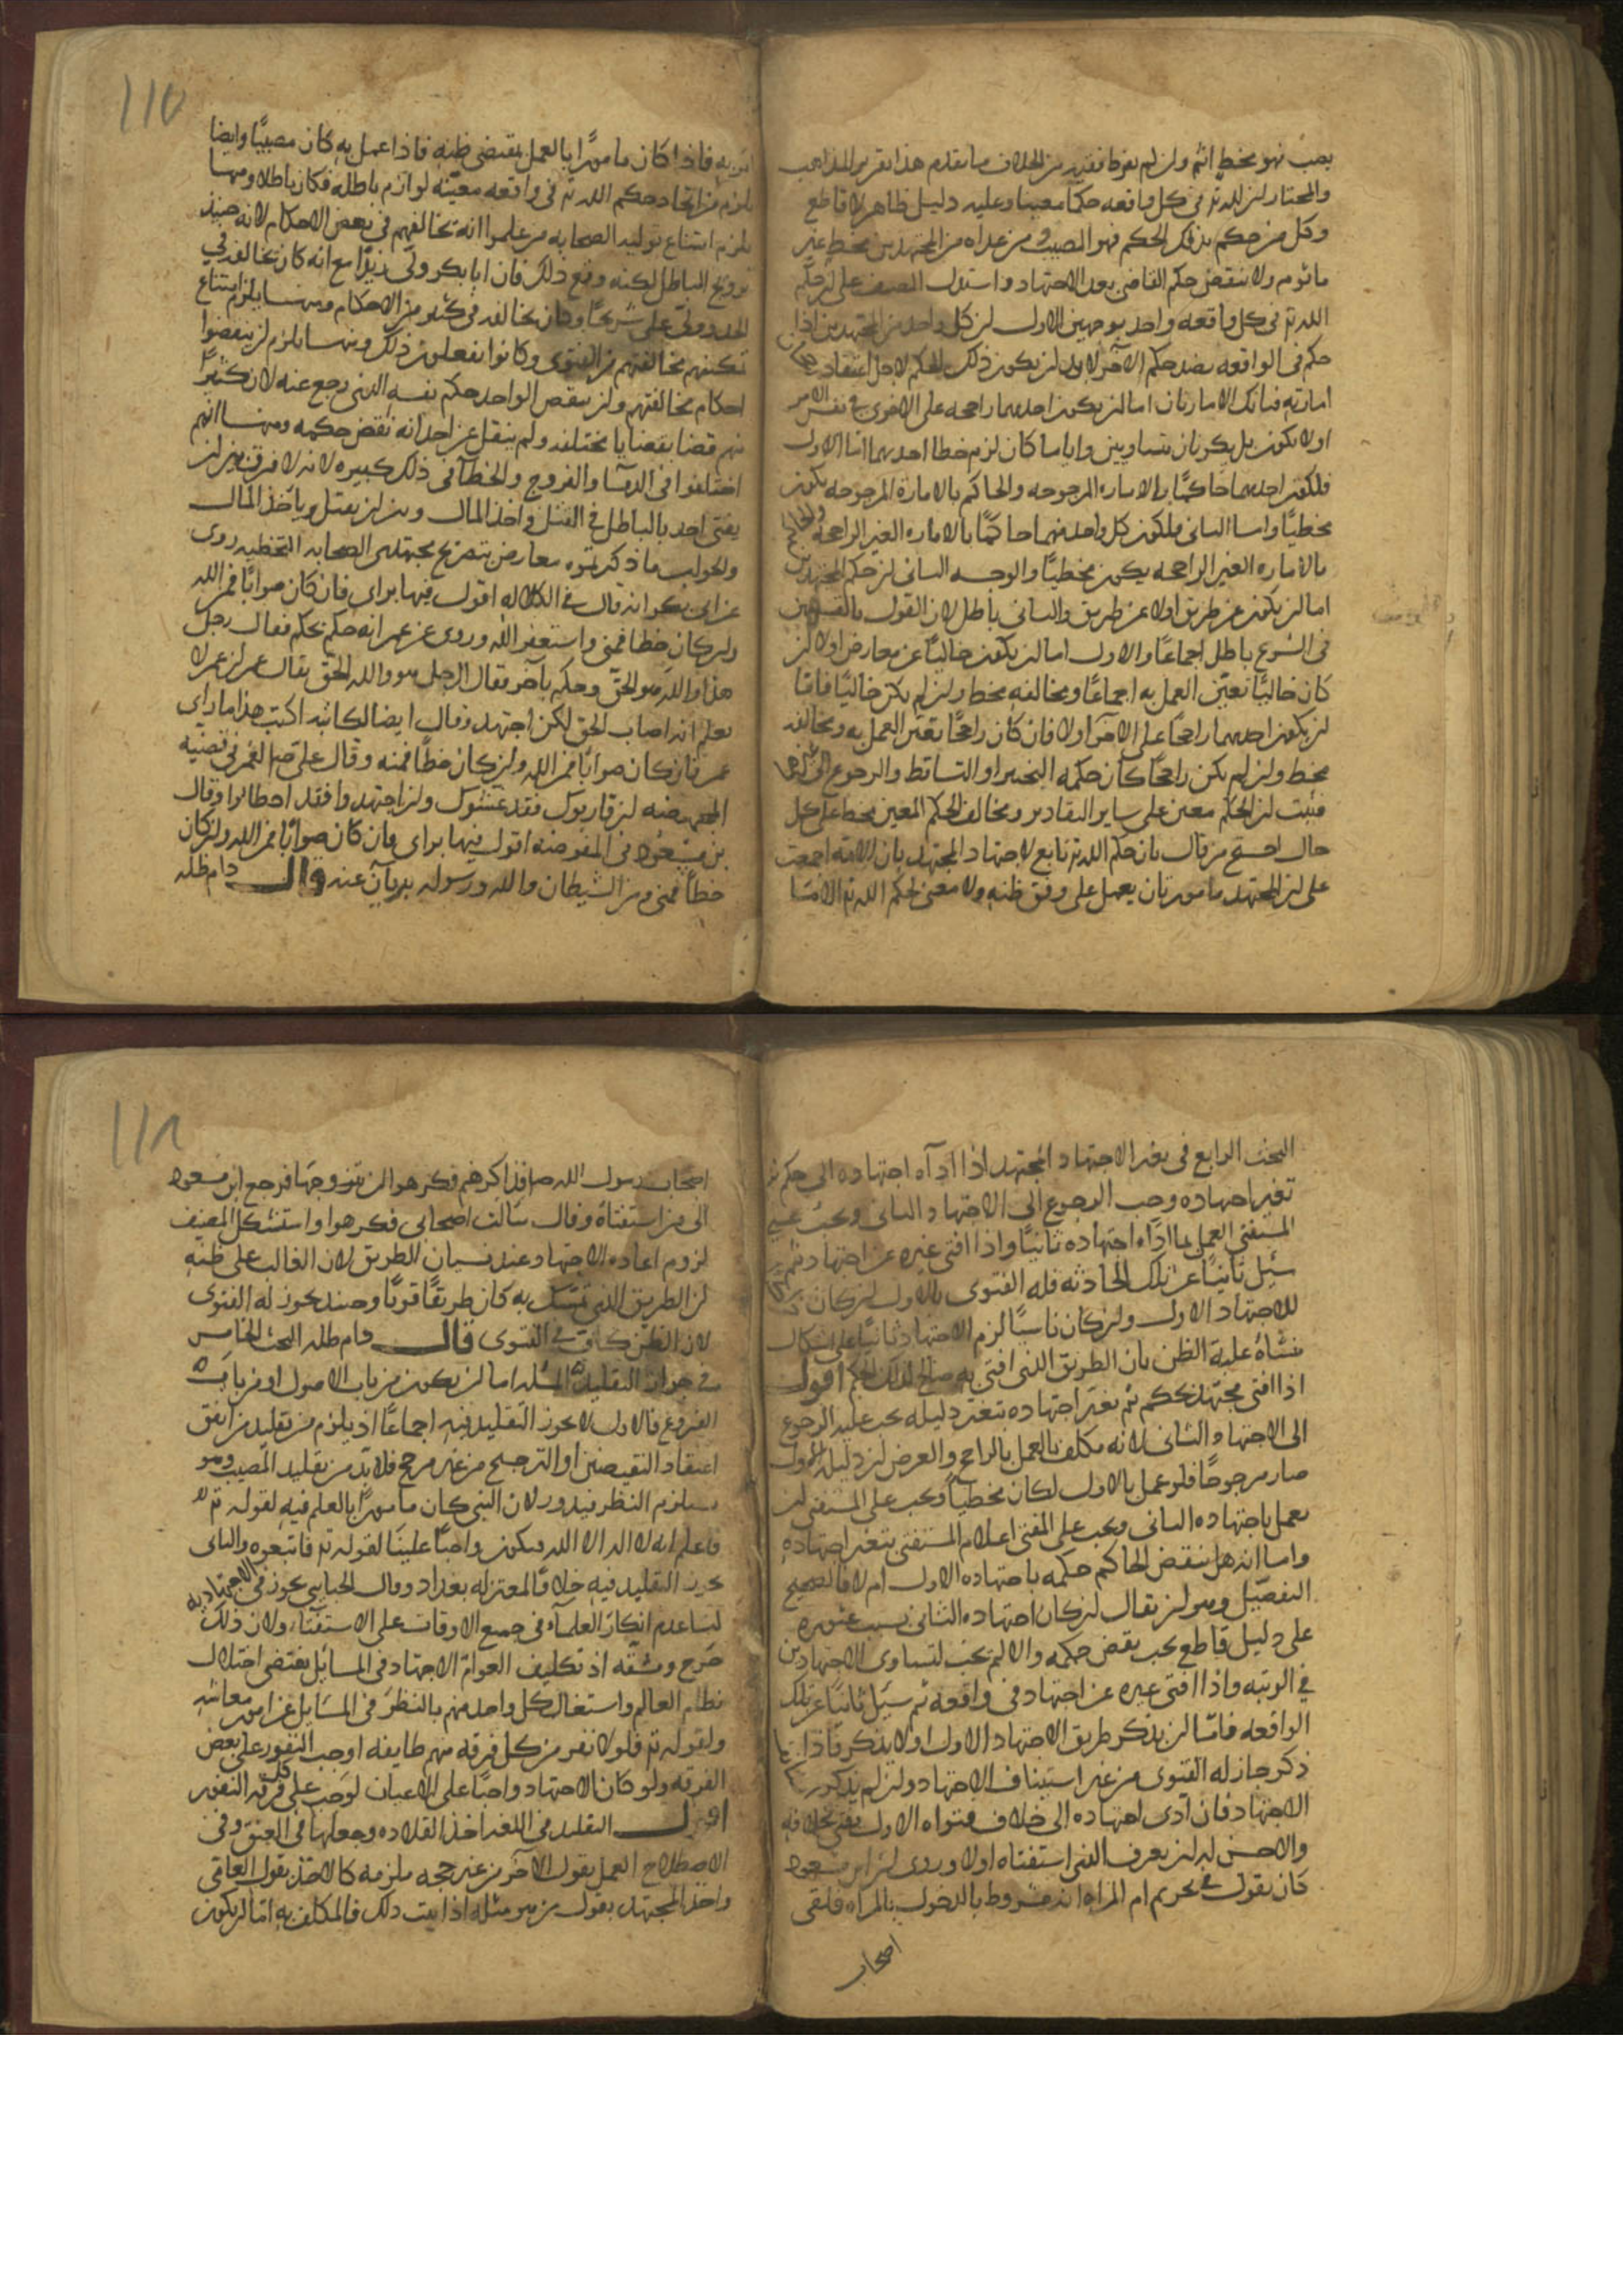 يصب فهو مخط اثم ولن لم يفرط ففيه من الخلاف ما تقدم هذا تقرير المذاهب
والمختار لن لله تع فى كل واقعه حكما معينا وعليه دليل ظاهر لا قاطع
وكل من حكم بذلك الحكم فهو المصيب ومن عداه من المجتهدين مخط غير
ماثوم ولا ينقض حكم القاضى بعد الاجتهاد واستدل المصنف على لن حكم
الله تع فى كل واقعه واحد بوجهين الاول لن كل واحد من المجتهدين اذا
حكم فى الواقعه بضد حكم الاخر لابد لن يكون ذلك الحكم لاجل اعتقاد رجحان
امارته فتانك الامارتان اما لن يكون احديهما راجحه على الاخرى فى نفس الامر
او لا يكون بل يكونان متساويين وايا ما كان لزم خطا احدهما اما الاول
فلكون احدهما حاكمًا بالاماره المرجوحه والحاكم بالامارة المرجوحه يكون
مخطيًا واما الثانى فلكون كل واحد منهما حاكمًا بالاماره الغير الراجحه والحاكم
بالاماره الغير الراجحه يكون مخطيًا والوجه الثانى لن حكم المجتهدين
اما لن يكون عن طريق اولا عن طريق والثانى باطل لان القول بالتشهى
فى الشرع باطل اجماعًا والاول اما لن يكون خاليًا عن معارض اولا لن
كان خاليًا تعيّن العمل به اجماعًا ومخالفه مخط ولن لم يكن خاليًا فاما
لن يكون احدهما راجحًا على الاخر اولا فان كان راجحًا تعين العمل به ومخالفه
مخط ولن لم يكن راجحًا كان حكمه التخيير او التساقط والرجوع الى غيرهما
فثبت لن الحكم معين على ساير التقادير ومخالف الحكم المعين مخط على كل
حال احتج من قال بان حكم الله تع تابع لاجتهاد المجتهد بان الامه اجمعت
على لن المجتهد مامور بان يعمل على وفق ظنه ولا معنى لحكم الله تع الا ما
امر به فاذا كان مامورًا بالعمل بمقتضى ظنه فاذا عمل به كان مصيبًا وايضا
يلزم من اتحاد حكم الله تع فى واقعه معيّنه لوازم باطله فكان باطلا ومنها
يلزم امتناع توليه الصحابه من علموا انه تخالفهم فى بعض الاحكام لانه حينئذ
ترويج الباطل لكنه وقع ذلك فان ابا بكر ولّى زيدًا مع انه كان يخالفه فى
الجد وولى على شريحًا وكان يخالفه فى كثير من الاحكام ومنها يلزم امتناع
تمكينهم مخالفيهم من الفتوى وكانوا يفعلون ذلك ومنها يلزم لن ينقضوا
احكام مخالفيهم ولن ينقض الواحد حكم نفسه الذى رجع عنه لان كثيرًا
منهم قضا بقضايا مختلفه ولم ينقل عن احد انه نقض حكمه ومنها انهم
اختلفوا فى الدما والفروج والخطا فى ذلك كبيره لانه لا فرق بين لن
يفتى احد بالباطل فى القتل واخذ المال وبين لن يقتل وياخذ المال
والجواب ما ذكرتموه معارض بتصريح مجتهدى الصحابه التخطيه روى
عن ابى بكر انه قال فى الكلاله اقول فيها براى فان كان صوابًا فمن الله
ولن كان خطا فمنى واستغفر الله وروى عن عمر انه حكم بحكم فقال رجل
هذا والله هو الحق وحكم باخر فقال الرجل هو والله الحق فقال عمر لن عمر لا
يعلم انه اصاب الحق لكن اجتهد وقال ايضا لكاتبه اكتب هذا ما راى
عمر فان كان صوابًا فمن الله ولن كان خطأ فمنه وقال على صلم لعمر فى قضيه
المجهضه لن قاربوك فقد غشوك ولن اجتهدوا فقد اخطاوا وقال
بن مسعود فى المفوضه اقول فيها براى فان كان صوابًا فمن الله ولن كان
خطأ فمنى ومن الشيطان والله ورسوله بريآن عنه قال دام ظله
البحث الرابع فى تغير الاجتهاد المجتهد اذا اداه اجتهاده الى حكم ثم
تغير اجتهاده وجب الرجوع الى الاجتهاد الثانى ويجب على
المستفتى العمل بما ادّاه اجتهاده ثانيًا واذا افتى غيره عن اجتهاد ثم
سئل ثانيًا عن تلك الحادثه فله الفتوى بالاول لن كان ذاكرا
للاجتهاد الاول ولن كان ناسيًا لزم الاجتهاد ثانيًا على اشكال
منشاه غلبة الظن بان الطريق الذى افتى به صالح لذلك الحكم اقول
اذا افتى مجتهد بحكم ثم تغير اجتهاده بتغير دليله يجب عليه الرجوع
الى الاجتهاد الثانى لانه مكلف بالعمل بالراجح والعرض لن دليله الاول
صار مرجوحًا فلو عمل بالاول لكان مخطيًا ويجب على المستفتى لن
يعمل باجتهاده الثانى ويجب على المفتى اعلام المستفتى بتغير اجتهاده
واما انه هل ينقض الحاكم حكمه باجتهاده الاول ام لا فالصحيح
التفصيل وهو لن يقال لن كان اجتهاده الثانى بسبب عثوره
على دليل قاطع يجب نقض حكمه والا لم يجب لتساوى الاجتهادين
فى الرتبه واذا افتى غيره عن اجتهاد فى واقعه ثم سئل ثانيًا عن تلك
الواقعه فاما لن يذكر طريق الاجتهاد الاول اولا يذكر فاذا
ذكر جاز له الفتوى من غير استيناف الاجتهاد ولن لم يذكر
الاجتهاد فان ادى اجتهاده الى خلاف فتواه الاول يفتى بخلافه
والاحسن له لن يعرف الذى استفتاه اولا وروى لن ابن مسعود
كان يقول فى تحريم ام المراه انه مشروط بالدخول بالمراه فلقى
اصحاب
اصحاب رسول الله ص فذاكرهم فكرهوا لن يتزوجها فرجع ابن مسعود
الى من استفتاه وقال سالت اصحابى فكرهوا واستشكل المصنف
لزوم اعاده الاجتهاد عند نسيان الطريق لان الغالب على ظنه
لن الطريق الذى تمسّك به كان طريقًا قويًا وحينئذ يجوز له الفتوى
لان الظن كاف فى الفتوى قال دام ظله البحث الخامس
فى جواز التقليد المسله اما لن يكون من باب الاصول او من باب
الفروع فالاول لا يجوز التقليد فيه اجماعًا اذ يلزم من تقليد من اتفق
اعتقاد النقيضين او الترجيح من غير مرجح فلابد من تقليد المصيب وهو
يستلزم النظر فيدور ولان النبى كان مامورًا بالعلم فيه لقوله تع
فاعلم انه لا اله الا الله فيكون واجبًا علينا لقوله تع فاتبعوه والثانى
يجوز التقليد فيه خلافًا لمعتزله بغداد وقال الجبايى يجوز فى الاجتهاديه
لنا عدم انكار العلماء فى جميع الاوقات على الاستفتاء ولان ذلك
حرج ومشقه اذ تكليف العوام الاجتهاد فى المسائل يقتضى اختلال
نظام العالم واستغال كل واحد منهم بالنظر فى المسايل عن امور معاشه
ولقوله تع فلولا نفر من كل فرقه منهم طايفه اوجب النفور على بعض
الفرقه ولو كان الاجتهاد واجبًا على الاعيان لوجب على كل فرقه النفور
اقول التقليد فى اللغه اخذ القلاده وجعلها فى العنق وفى
الاصطلاح العمل بقول الآخر من غير حجه ملزمه كالاخذ بقول العامى
واخذ المجتهد بقول من هو مثله اذا ثبت ذلك فالمكلف به اما لن يكون